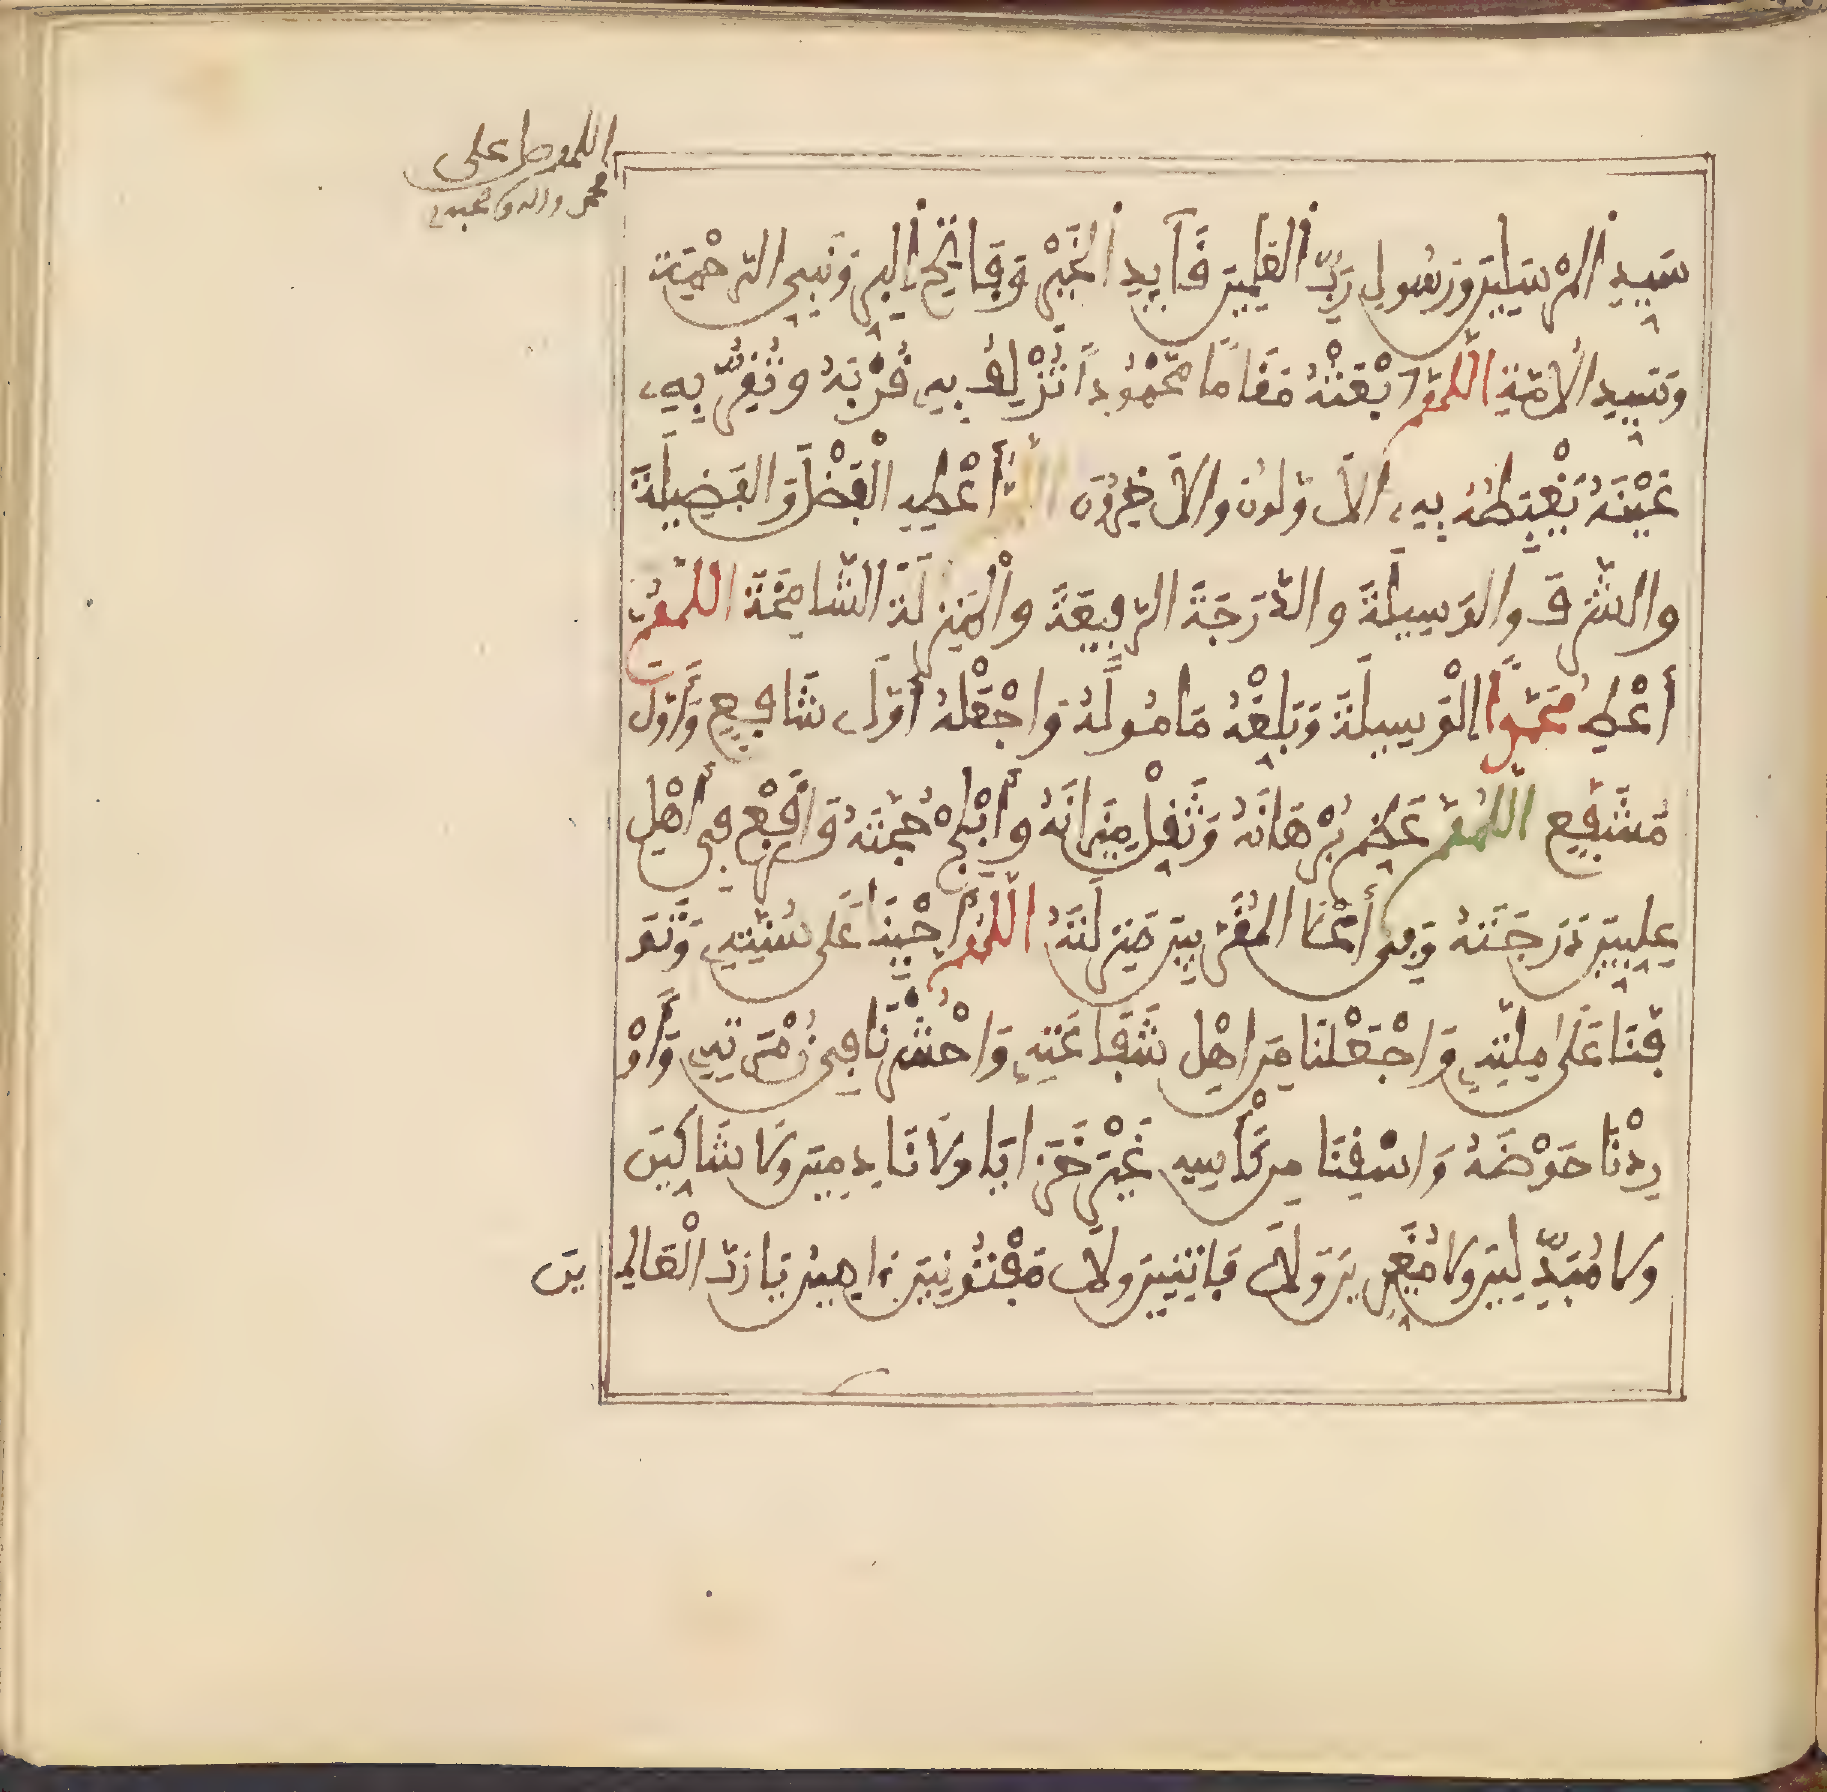 اللهم صل على
محمد واله وصحبه
سَيِّدِ المُرْسَلِينَ وَرَسُولِ رَبِّ العَلَمِينَ قَآيِدِ الخَيْرِ وَفَاتِحِ البِرِّ وَنَبِيِّ الرَّحْمَةِ
وَسَيِّدِ الأُمَّةِ اللَّهُمَّ ابْعَثْهُ مَقَامًا مَّحْمُودًا تُزْلِفُ بِهِ قُرْبَهُ وَتُقِرُّ بِهِ
عَيْنَهُ يَغْبِطُهُ بِهِ الأَوَّلُونَ والأَخِرُونَ اللهم أَعْطِهِ الْفَضْلَ وَالفَضِيلَةَ
والشَّرَفَ والوَسِيلَةَ والدَّرَجَةَ الرَّفِيعَةَ والْمَنزِلَةَ الشَّامِخَةَ اللَّهُمَّ
أَعْطِ مُحَمَّداً الْوَسِيلَةَ وَبَلِّغْهُ مَامُولَهُ وَاجْعَلْهُ أَوَّلَ شَافِعٍ وَأَوَّلَ
مُشَفَّعٍ اللَّهُمَّ عَظِّمْ بُرْهَانَهُ وَثَقِّلْ مِيزَانَهُ وأَبْلِجْ حُجَّتَهُ وَارْفَعْ فِي أَهْلِ
عِلِّيِّينَ دَرَجَتَهُ وَفِي أَعْلَا المُقَرَّبِينَ مَنزِلَتَهُ اللَّهُمَّ أَحْيِنَا عَلَى سُنَّتِهِ وَتَوَ
فَّنَا عَلَى مِلَّتِهِ وَاجْعَلْنَا مِنَ اهْلِ شَفَاعَتِهِ وَاحْشُرْنَا فِي زُمْرَتِهِ وَأَوْ
رِدْنَا حَوْضَهُ وَاسْقِنَا مِن كَأْسِهِ غَيْرَ خَزَايَا ولَا نَادِمِينَ ولَا شَاكِّينَ
ولَا مُبَدِّلِينَ ولَا مُغَيِّرِينَ وَلَا فَاتِنِينَ ولَا مَفْتُونِينَ ءَامِينَ يَا رَبَّ الْعَالَمِينَ